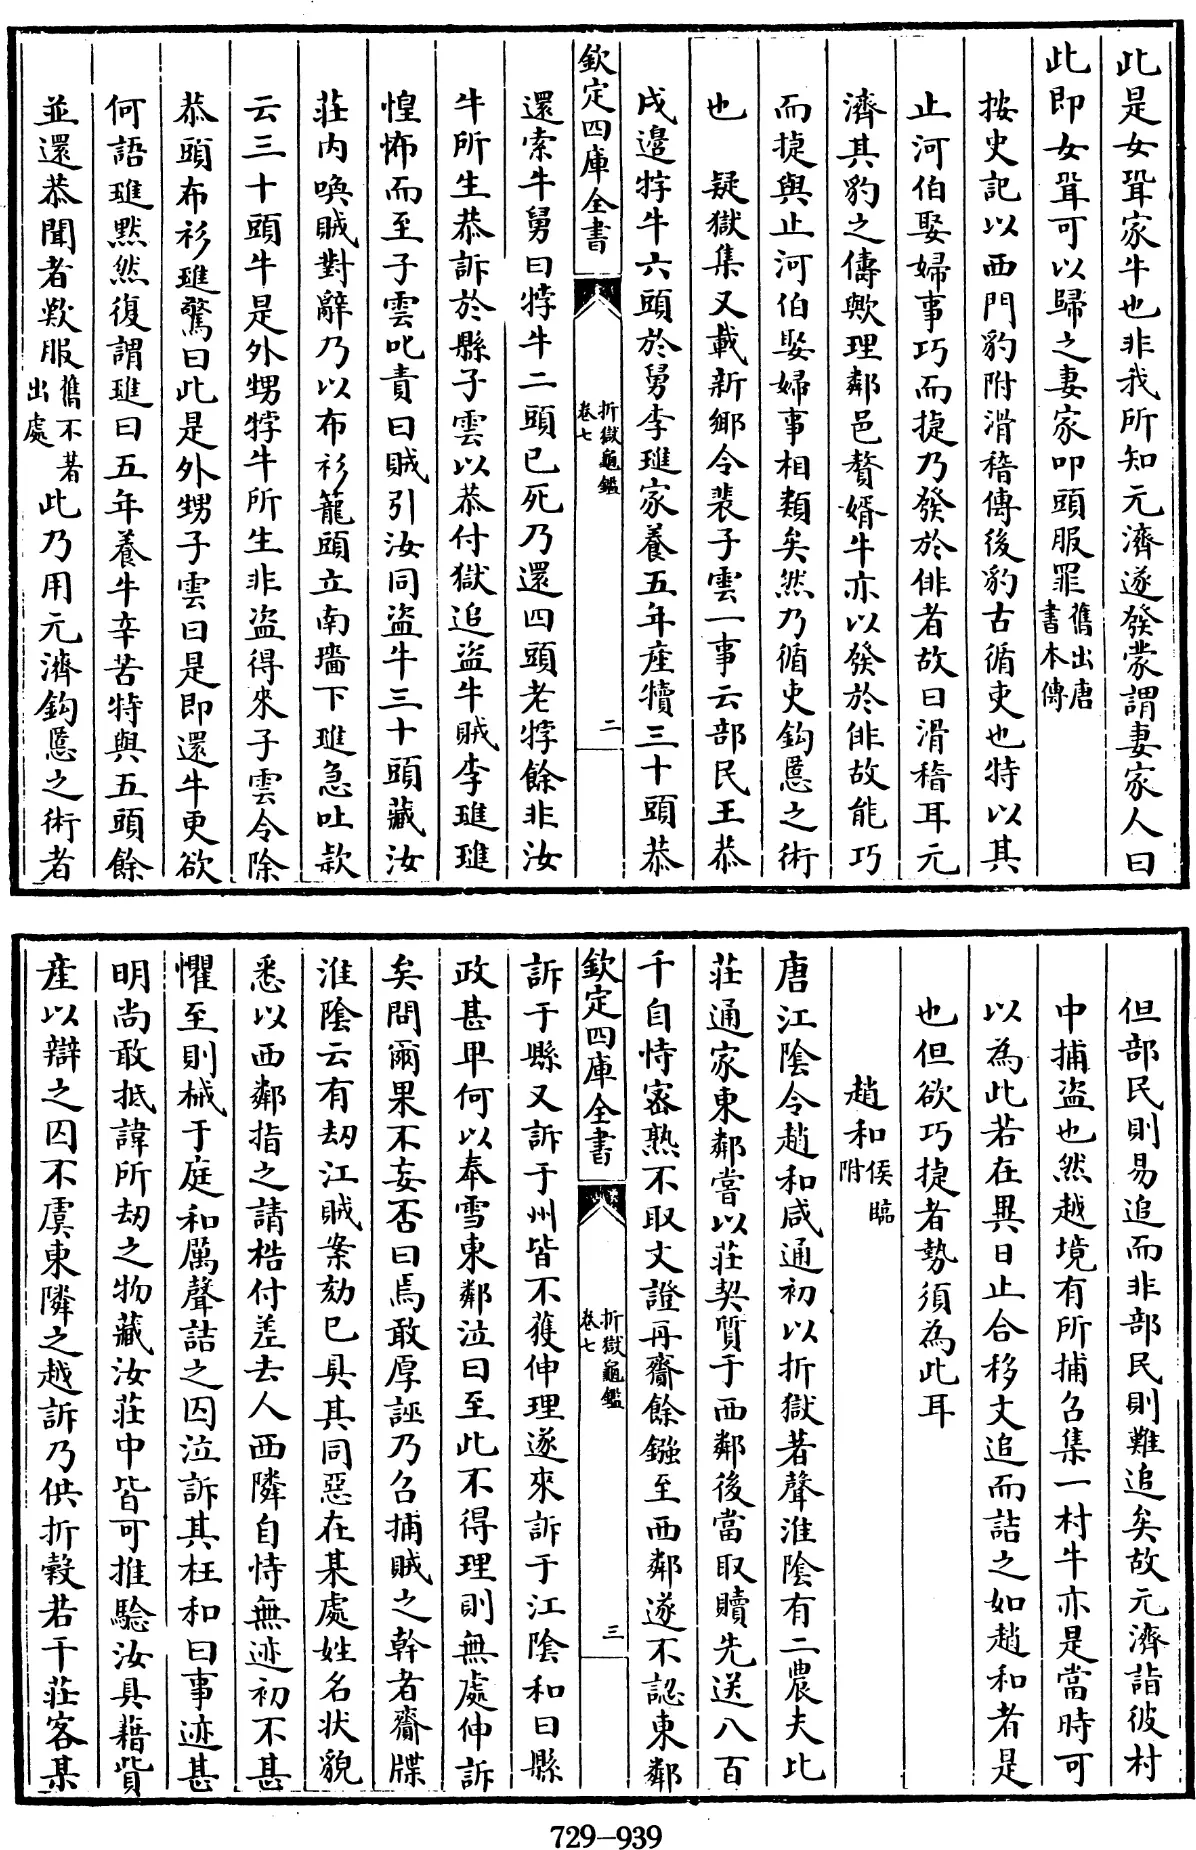 此是女壻家牛也非我所知元濟遂發蒙謂妻家人曰
此即女壻可以歸之妻家叩頭服罪舊出唐書本傳
按史記以西門豹附滑稽傳後豹古循吏也特以其
止河伯娶婦事巧而捷乃發於俳者故曰滑稽耳元
濟其豹之儔歟理鄰邑贅婿牛亦以發於俳故能巧
而捷與止河伯娶婦事相類矣然乃循吏鈎慝之術
也　疑獄集又載新鄉令裴子雲一事云部民王恭
戍邉牸牛六頭於舅李璡家養五年産犢三十頭恭
欽定四庫全書
折獄龜鑑
卷七
二
還索牛舅曰牸牛二頭已死乃還四頭老牸餘非汝
牛所生恭訴於縣子雲以恭付獄追盜牛賊李璡璡
惶怖而至子雲叱責曰賊引汝同盜牛三十頭藏汝
莊内喚賊對辭乃以布衫籠頭立南墻下璡急吐款
云三十頭牛是外甥牸牛所生非盜得來子雲令除
恭頭布衫璡驚曰此是外甥子雲曰是即還牛更欲
何語璡黙然復謂璡曰五年養牛辛苦特與五頭餘
並還恭聞者歎服舊不著出處此乃用元濟鈎慝之術者
但部民則易追而非部民則難追矣故元濟詣彼村
中捕盜也然越境有所捕召集一村牛亦是當時可
以為此若在異日止合移文追而詰之如趙和者是
也但欲巧捷者勢須為此耳
趙和侯臨附
唐江陰令趙和咸通初以折獄著聲淮陰有二農夫比
莊通家東鄰嘗以莊契質于西鄰後當取贖先送八百
千自恃密熟不取文證再齎餘鏹至西鄰遂不認東鄰
欽定四庫全書
折獄龜鑑
卷七
三
訴于縣又訴于州皆不獲伸理遂來訴于江陰和曰縣
政甚卑何以奉雪東鄰泣曰至此不得理則無處伸訴
矣問爾果不妄否曰焉敢厚誣乃召捕賊之幹者齎牒
淮陰云有刼江賊案劾已具其同惡在某處姓名状貌
悉以西鄰指之請梏付差去人西隣自恃無迹初不甚
懼至則械于庭和厲聲詰之囚泣訴其枉和曰事迹甚
明尚敢抵諱所刼之物藏汝莊中皆可推驗汝具藉貲
産以辯之囚不虞東隣之越訴乃供折穀若干莊客某
729-939